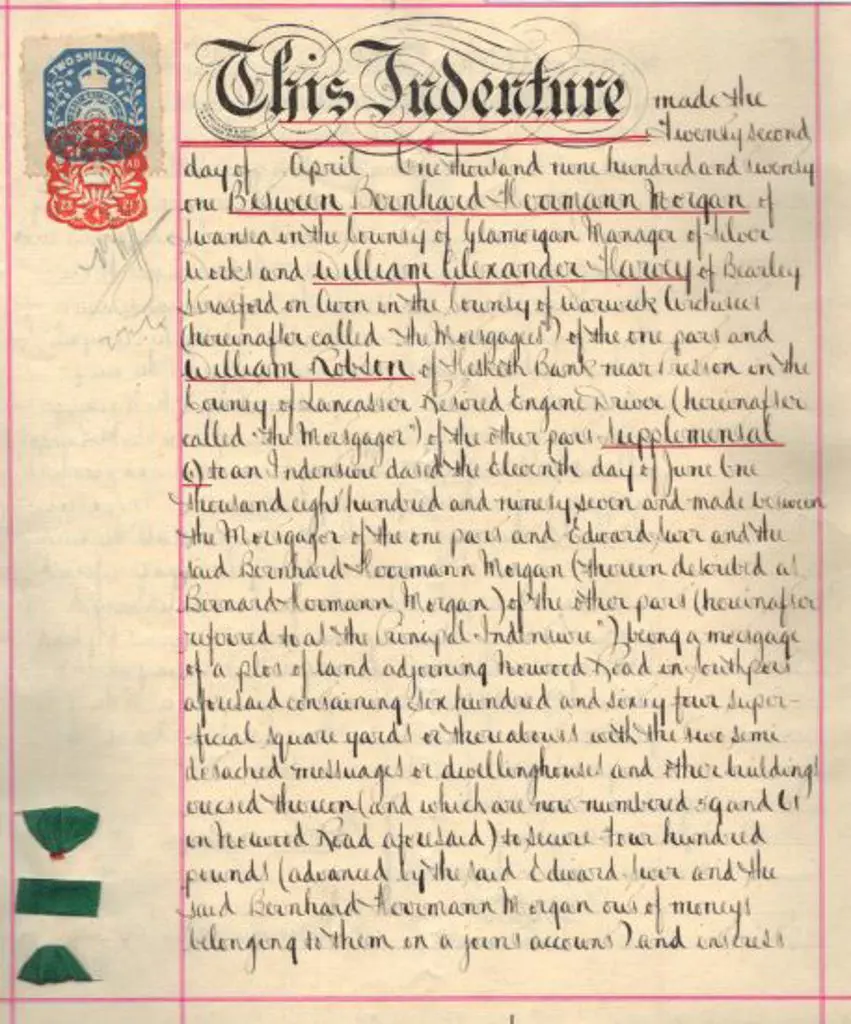 TWO SHILLINGS
This Indenture made the
Twenty second
day of April One thousand nine hundred and twenty
one Between Bernhard Hermann Morgan of
Swansea in the County of Glamorgan Manager of Silver
Works and William Alexander Harvey of Bearley
Stratford on Avon in the County of Warwick Architect
(hereinafter called "the Mortgagees") of the one part and
William Robson of Hesketh Bank near Preston in the
County of Lancaster Retired Engine Driver (hereinafter
called "the Mortgagor") of the other part Supplemental
to an Indenture dated the Eleventh day of June One
thousand eight hundred and ninety seven and made between
the Mortgagor of the one part and Edward and the
said Bernhard Hermann Morgan (therein described as
Bernard Hermann Morgan) of the other part (hereinafter
referred to as "the Principal Indenture") being a mortgage
of a plot of land adjoining Norwood Road in Southport
aforesaid containing six hundred and sixty four super-
-ficial square yards or thereabouts with the two semi
detached messuages or dwellinghouses and other buildings
erected thereon (and which are now numbered 59 and 61
in Norwood Road aforesaid) to secure four hundred
pounds (advanced by the said Edward and the
said Bernhard Hermann Morgan out of moneys
belonging to them on a joint account) and interest